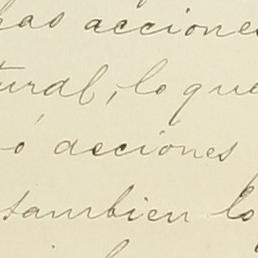 has acciones
tural, lo que
ó acciones
tambien lo